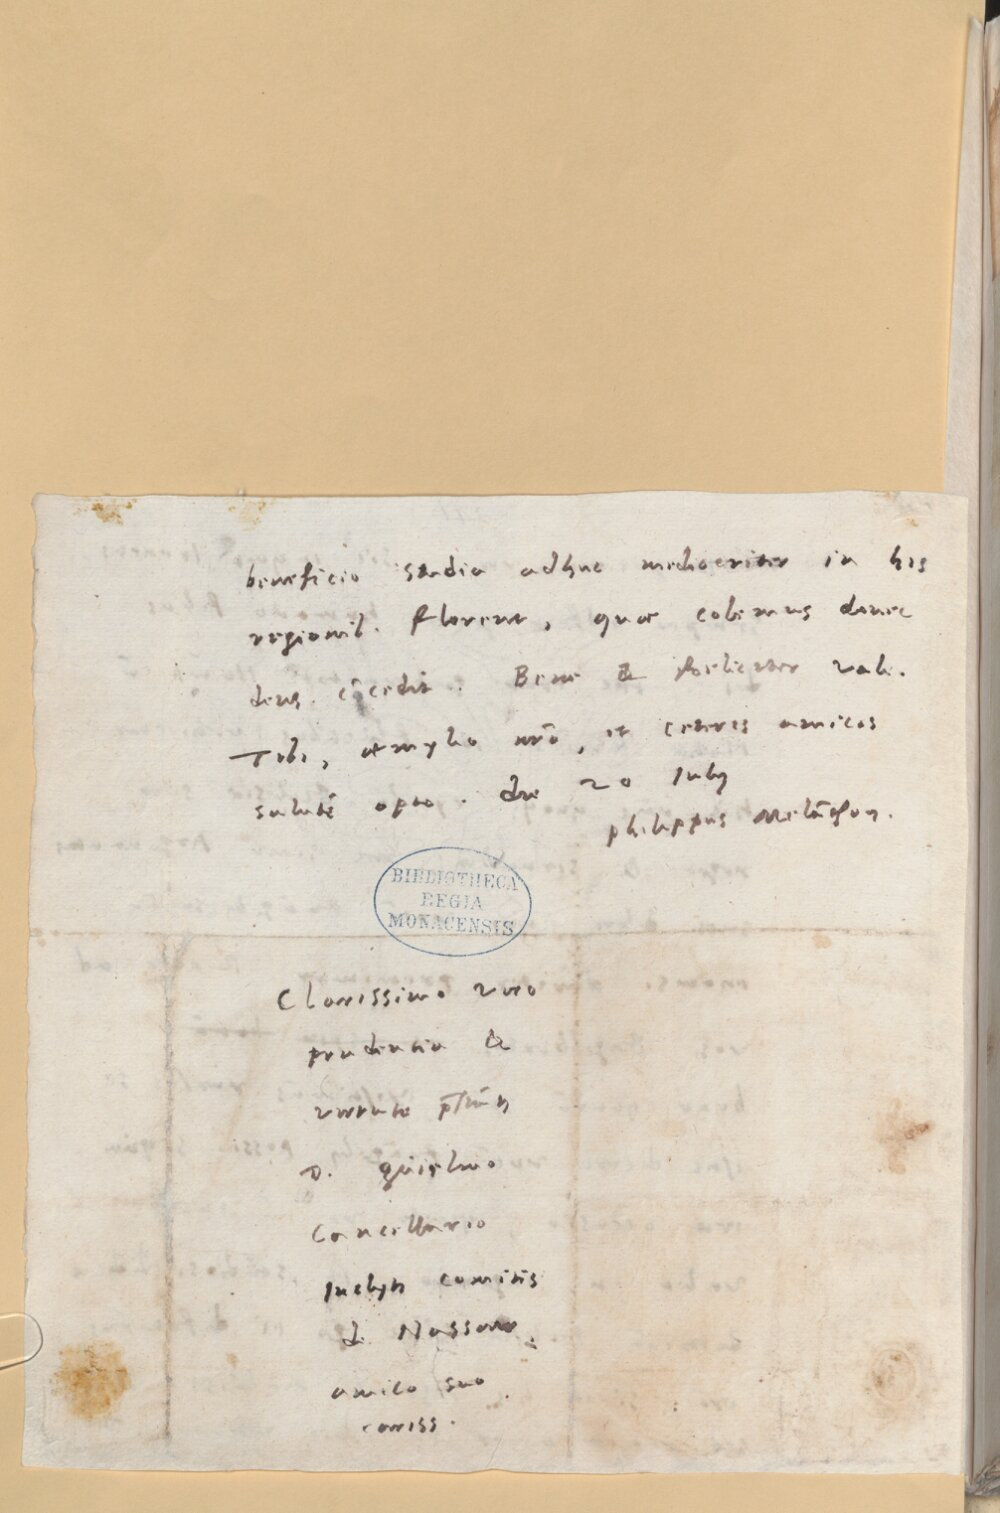 beneficio studia adhuc mediocriter in his
regionib. florent, quae colemus donec
deus cōcedit. Bene & foeliciter vale.
Tibi, aemylio nr̄o, et ceteris amicis
salutē opto. die 20 July
philippus Melāthon.
BIBLIOTHECA
REGIA
MONACENSIS
Clarissimo viro
prudentia &
virtute
D.
Cancellario
Inclyti comitis
d. Nassaw
amico suo
cariss.